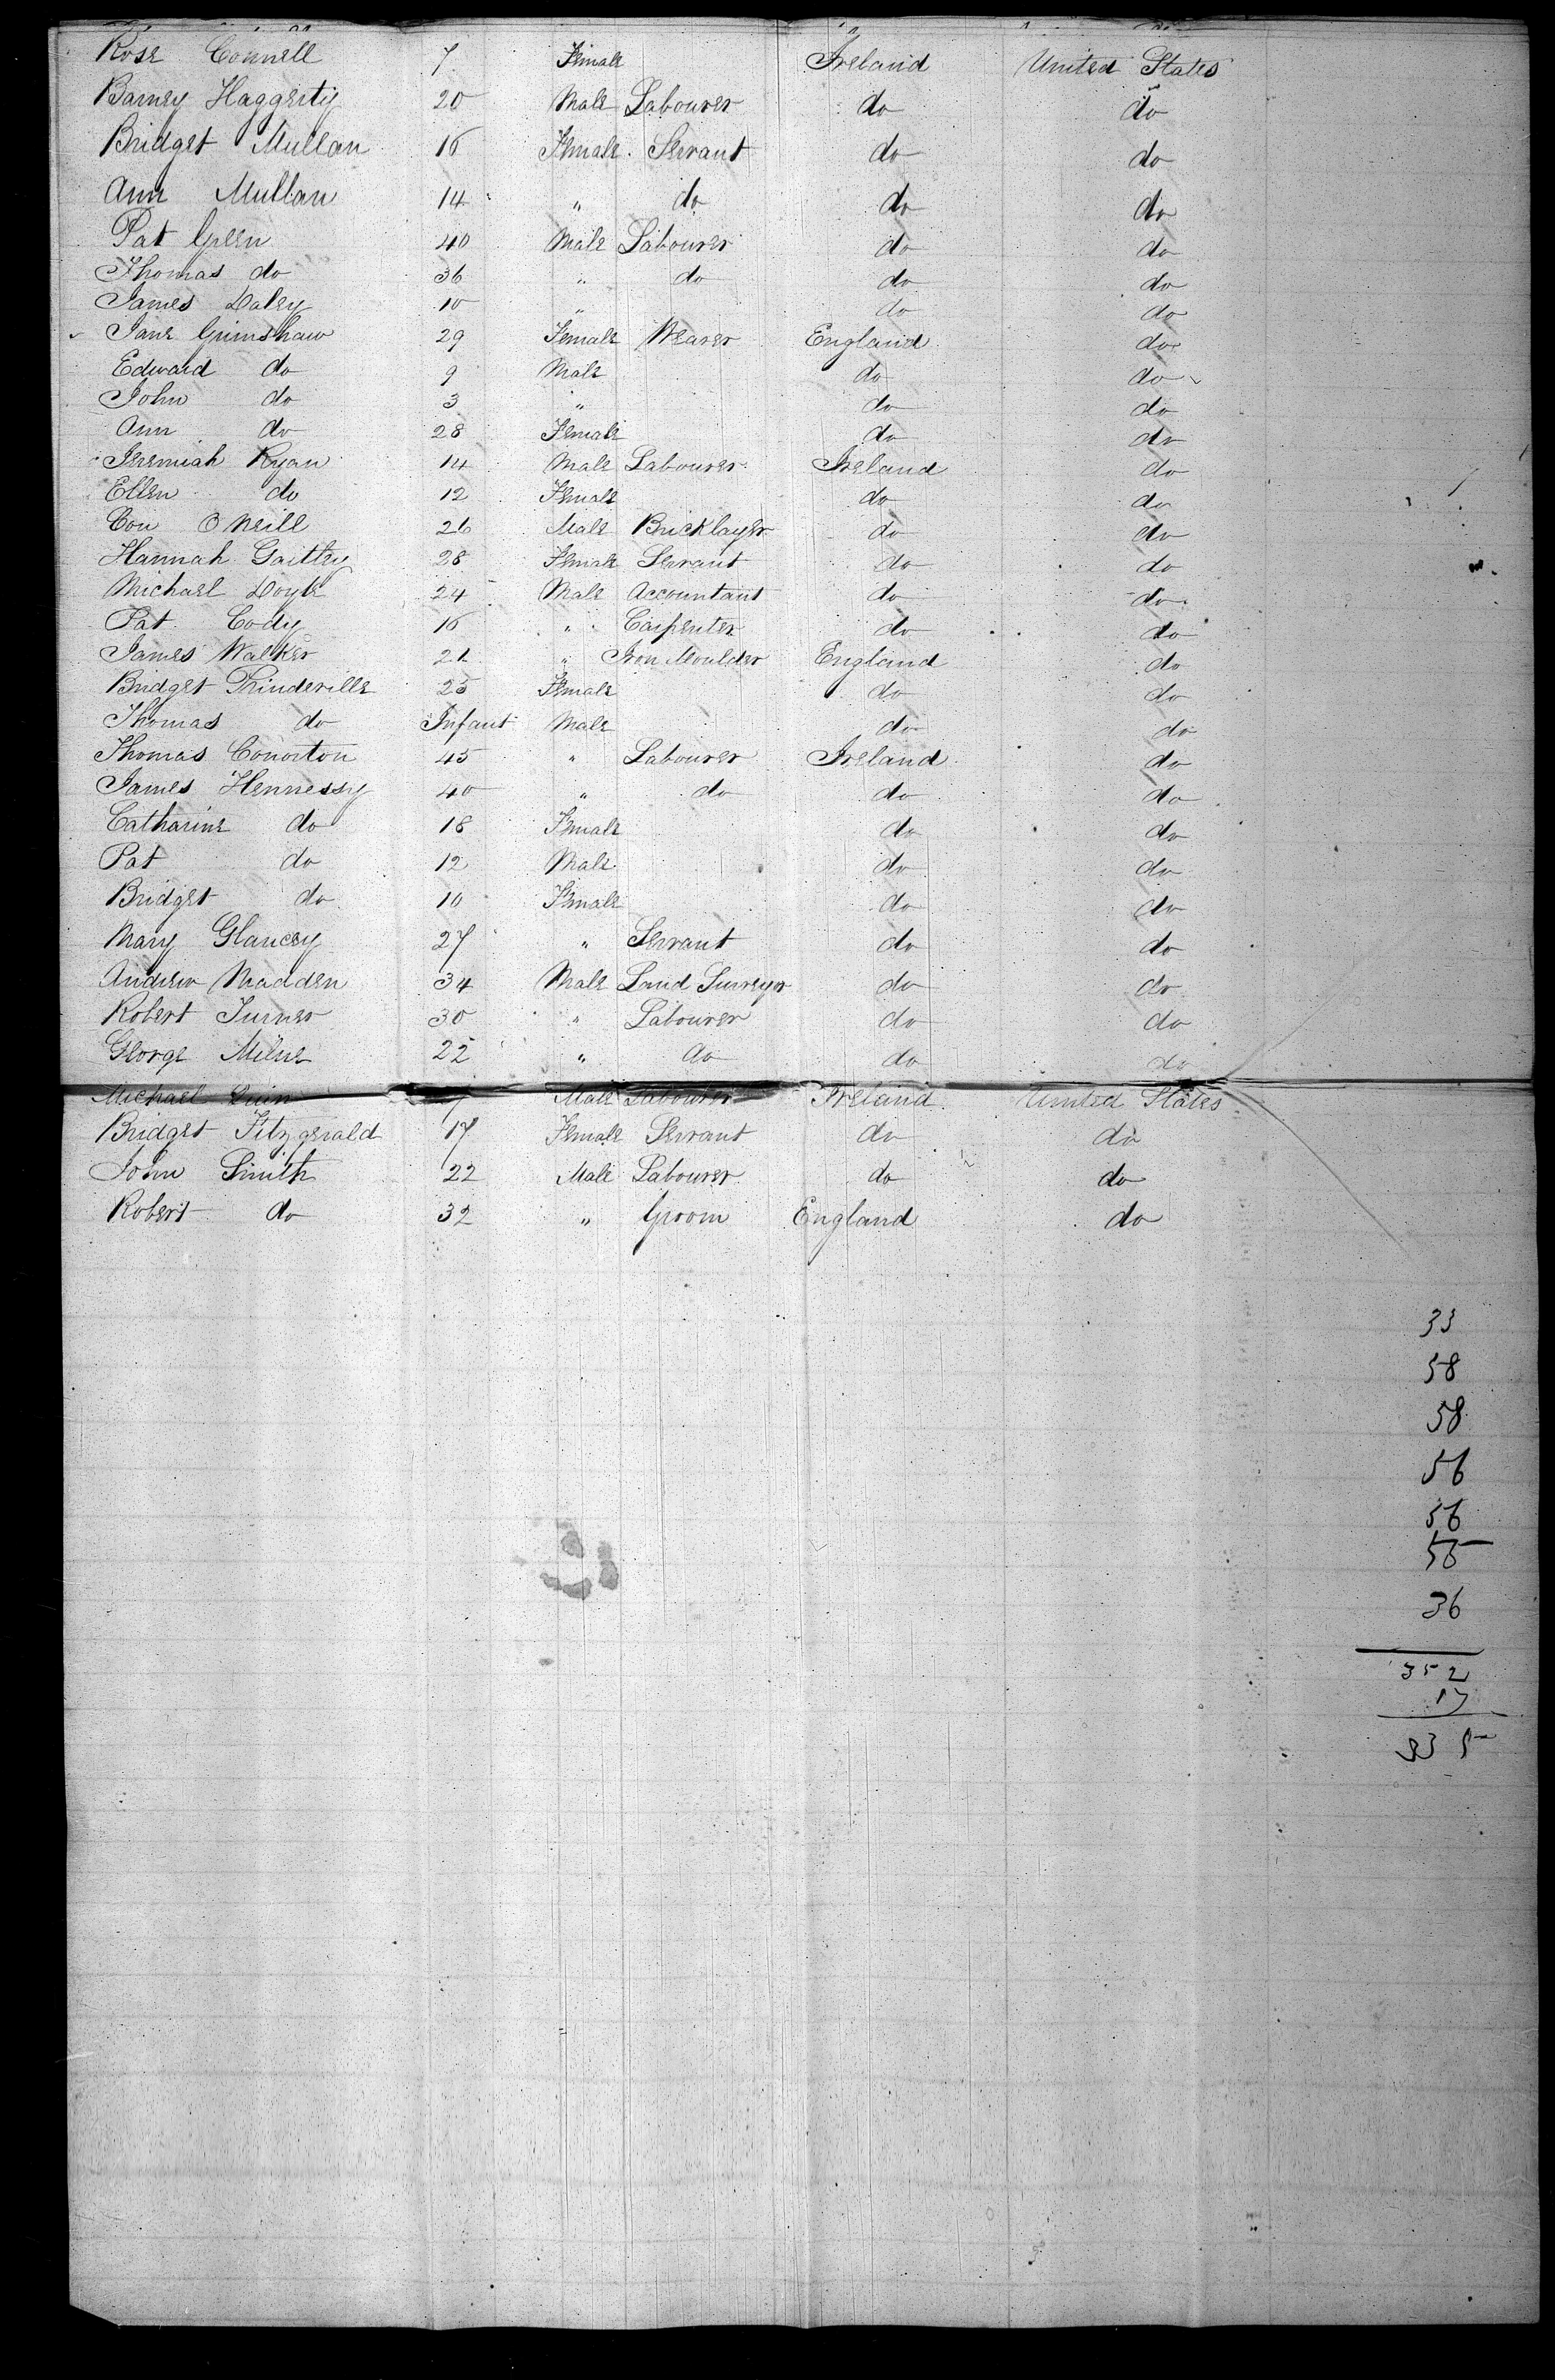 Rose Connell 7 Female Ireland United States
Barney Haggerty 20 Male Labourer do do
Bridget Mullan 16 Female Servant do do
Ann Mullan 14 " do do do
Pat Green 40 Male Labourer do do
Thomas do 36 " do do do
James Daley 10 " do do
Jane Grimshaw 29 Female Weaver England do
Edward do 9 Male do do
John do 3 " do do
Ann do 28 Female do do
Jeremiah Ryan 14 Male Labourer Ireland do
Ellen do 12 Female do do
Con O Neill 26 Male Bricklayer do do
Hannah 28 Female Servant do do
Michael Doyle 24 Male Accountant do do
Pat Cody 16 " Carpenter do do
James Walker 21 " Iron Moulder England do
Bridget Prinderville 25 Female do do
Thomas do Infant Male do do
Thomas 45 " Labourer Ireland do
James Hennessy 40 " do do do
Catharine do 18 Female do do
Pat do 12 Male do do
Bridget do 10 Female do do
Mary Glancey 27 " Servant do do
Andrew Madden 34 Male Land Surveyor do do
Robert Turner 30 " Labourer do do
George Milne 22 " do do do
Michael Male Labourer Ireland United States
Bridget Fitzgerald 17 Female Servant do do
John Smith 22 Male Labourer do do
Robert do 32 " Groom England do
33
58
58
56
56
55
36
352
17
335